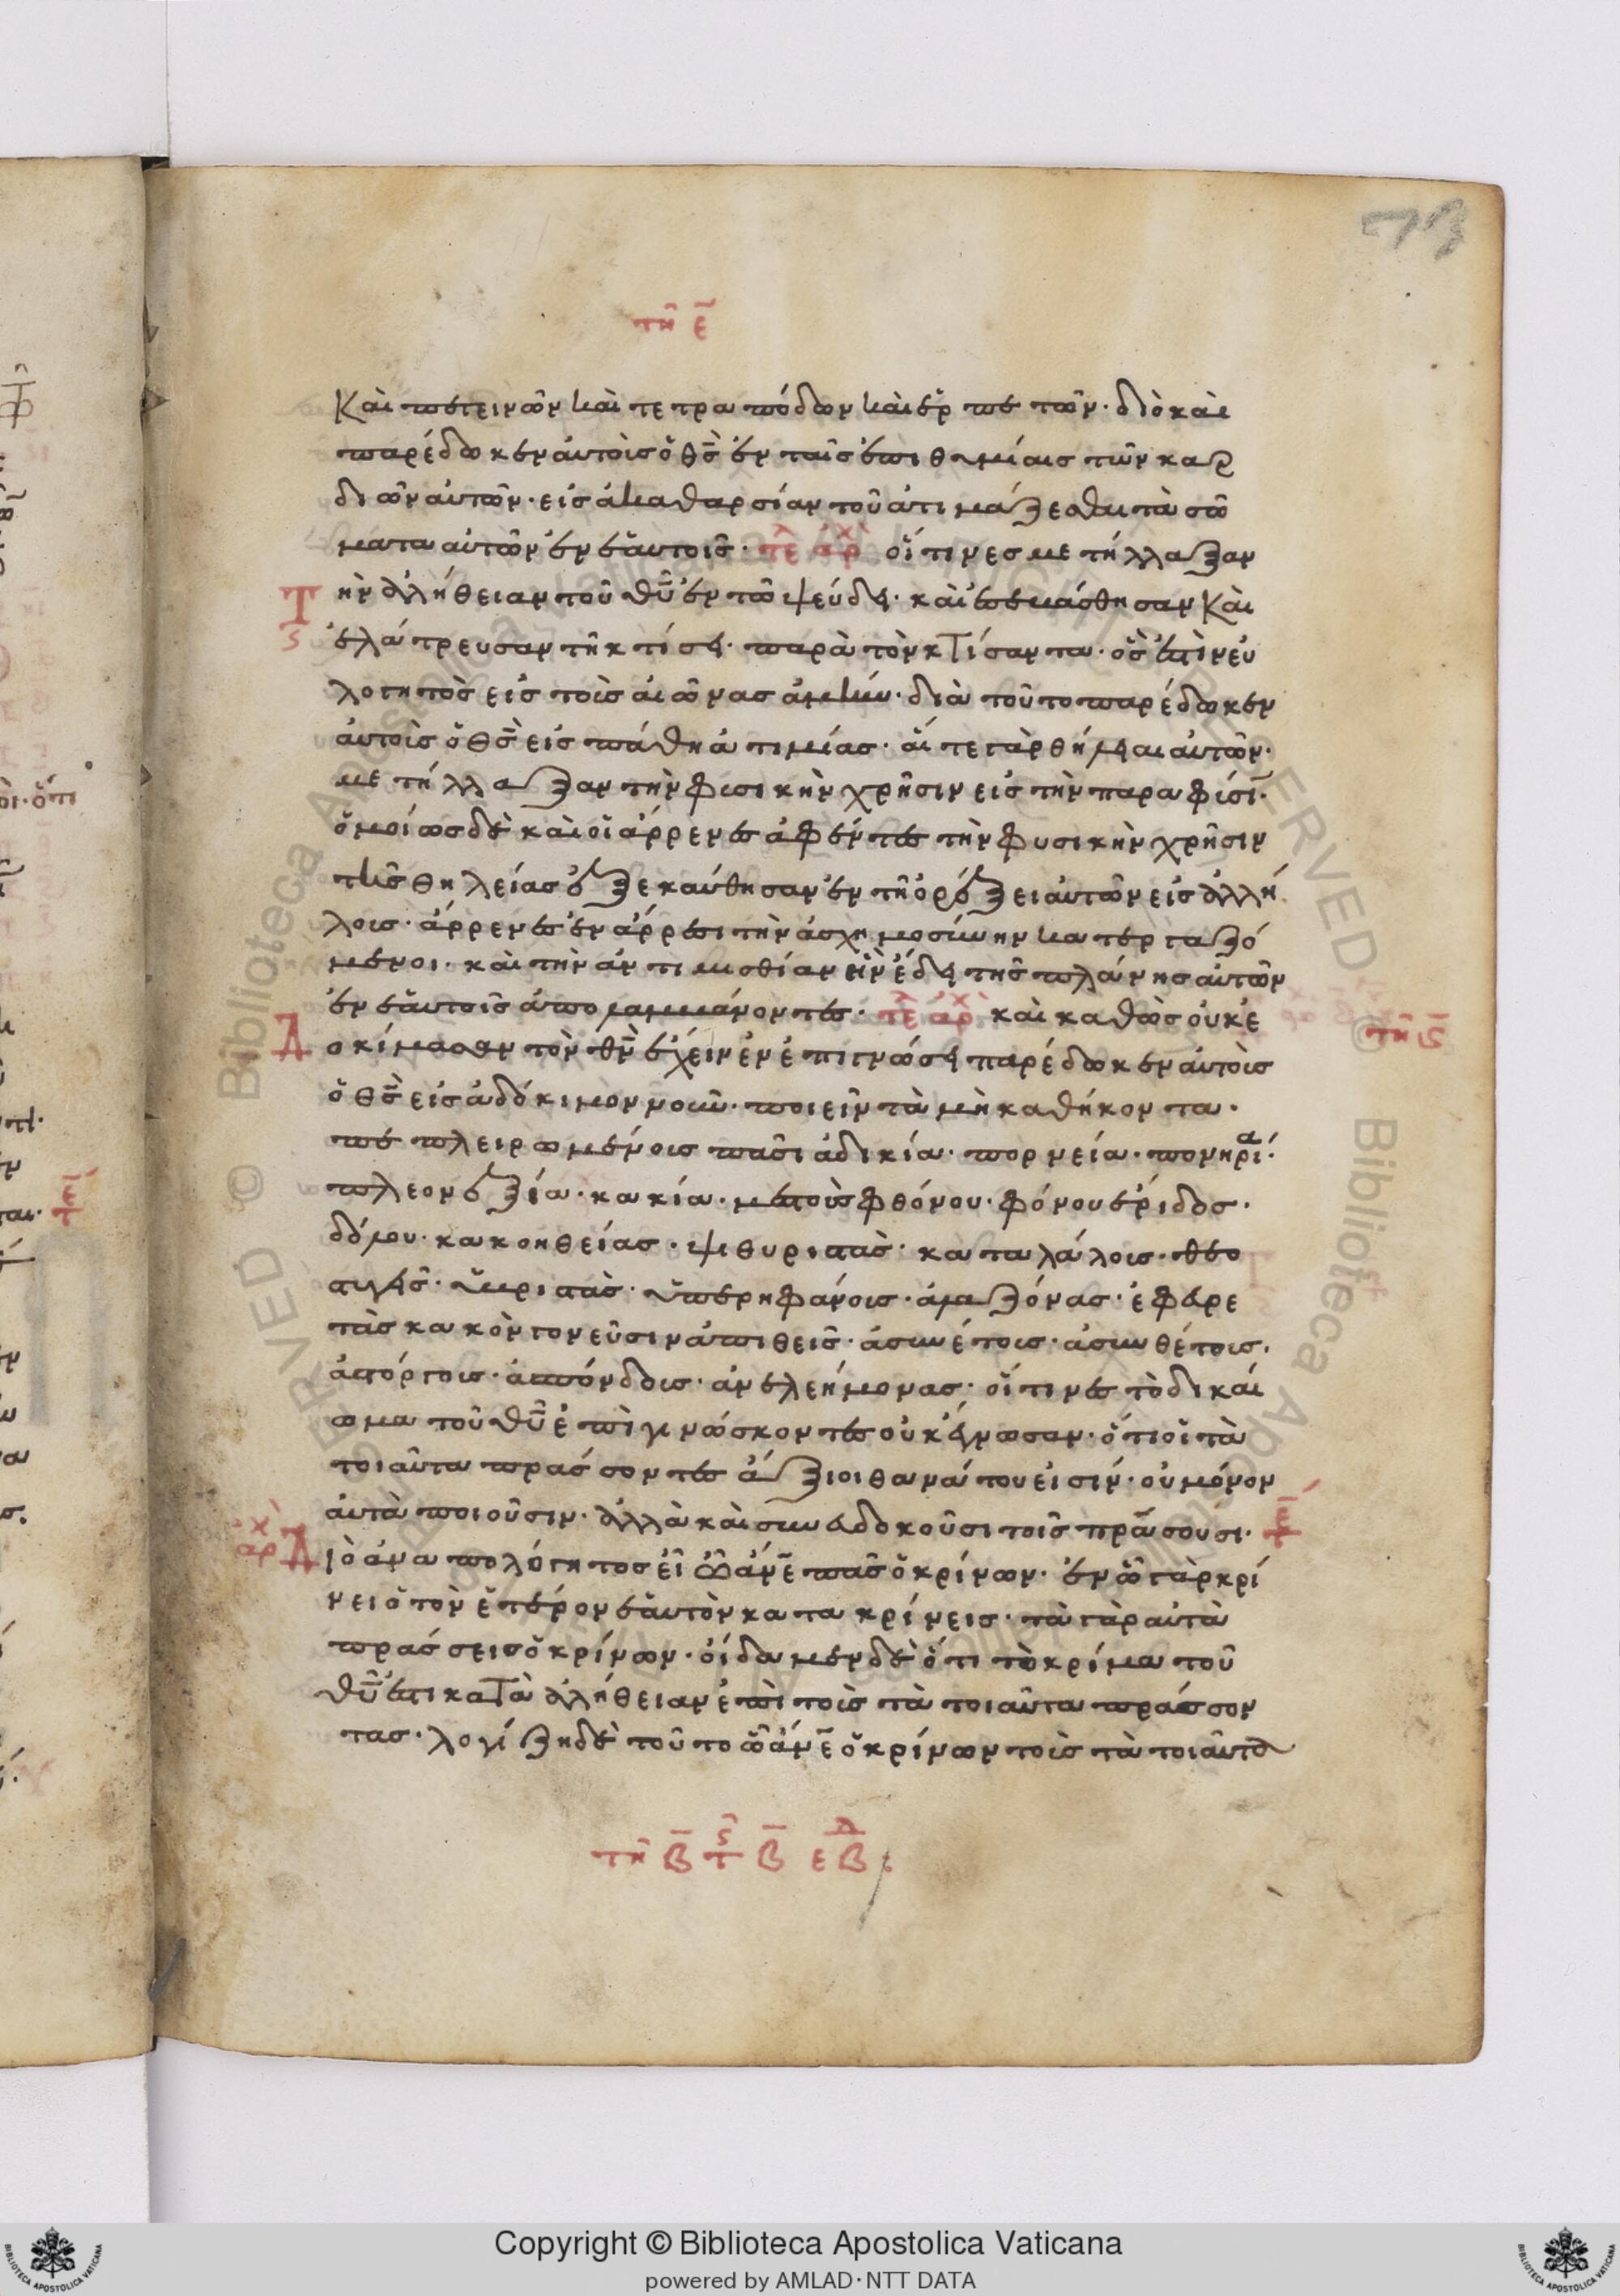 τῆ ε̄
Καὶ πετεινῶν καὶ τετραπόδων καὶ ἑρπετῶν· διὸ καὶ
παρέδωκεν αὐτοὶς ὁ θς̄ ἐν ταῖς ἐπιθυμίαις τῶν καρ
διῶν αὐτῶν· εἰς ἀκαθαρσίαν τοῦ ἀτιμάζεσθαι τὰ σώ
ματα αὐτῶν ἐν ἑαυτοῖς· τε αρχ οἵτινες μετήλλαξαν
Τ ὴν ἀλήθειαν τοῦ θῡ ἐν τῶ ψεύδει· καὶ ἐσεβάσθησαν Καὶ
ἐλάτρευσαν τῆ κτίσει· παρὰ τὸν κτίσαντα· ὅς ἐστὶν εὐ
λογητὸς εἰς τοὶς αἰῶνας ἀμήν· διὰ τοῦτο παρέδωκεν
αὐτοὶς ὁ θς̄ εἰς πάθη ἀτιμίας· αἵ τε γὰρ θήλειαι αὐτῶν·
μετήλλαξαν τὴν φισικὴν χρῆσιν εἰς τὴν παρα φίσῑ·
ὁμοίως δὲ καὶ οἱ ἄρρενες ἀφέντες τὴν φυσικὴν χρῆσιν
τῆς θηλείας ἐξεκαύθησαν ἐν τῆ ὀρέξει αὐτῶν εἰς ἀλλή
λοις· ἄρρενες ἐν ἄρρεσι τὴν ἀσχημοσύνην κατεργαζό
μενοι· καὶ τὴν ἀντιμισθίαν ἣν ἔδει τῆς πλάνης αὐτῶν
ἐν ἑαυτοῖς ἀπολαμβάνοντες· τε αρχ καὶ καθὼς οὐκ ἐ
Δ οκίμασαν τὸν θν̄ ἔχειν ἐν ἐπιγνώσει παρέδωκεν αὐτοὶς
τῆ ς̄
ὁ θς̄ εἰς ἀδόκιμον νοῦν· ποιεῖν τὰ μὴ καθήκοντα·
πεπλειρωμένοις πᾶσι ἀδικία· πορνεία· πονηρία·
πλεονεξία· κακία· μεστοὺς φθόνου· φόνου ἔριδος·
δόλου· κακοηθείας· ψιθυριστὰς· καταλάλοις· θεο
στιγεῖς· ὑβριστὰς· ὑπερηφάνοις· ἀλαζόνας· ἐφευρε
τὰς κακὸν γονεῦσιν ἀπιθεῖς· ἀσυνέτοις· ἀσυνθέτοις·
ἀστόργοις· ἀσπόνδοις· ἀνελεήμονας· οἵτινες τὸ δικαί
ωμα τοῦ θῡ ἐπὶγινώσκοντες οὐκ ἔγνωσαν· ὅτι οἱ τὰ
τοιαῦτα πράσσοντες ἄξιοι θανάτου εἰσίν· οὐ μόνον
αὐτὰ ποιοῦσιν· ἀλλὰ καὶ συνευδοκοῦσι τοῖς πράσουσι·
αρχ Δ ιὸ ἀναπολόγητος εἶ ὦ ἄνε̄ πᾶς ὁ κρίνων· ἐν ὧ γὰρ κρί
νει ὁ τὸν ἕτερον ἑαυτὸν κατακρίνεις· τὰ γὰρ αὐτὰ
πράσσεις ὁ κρίνων· οἴδαμεν δὲ ὅτι τὸ κρίμα τοῦ
θῡ ἐστι κατὰ ἀλήθειαν ἐπὶ τοὶς τὰ τοιαῦτα πράσσον
τας· λογίζη δὲ τοῦτο ὦ ἄνε̄ ὁ κρίνων τοὶς τὰ τοιαῦτα
Copyright © Biblioteca Apostolica Vaticana
powered by AMLAD·NTT DATA